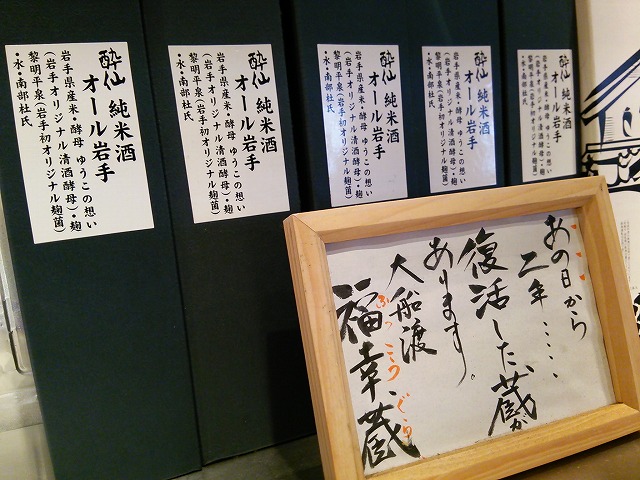 酔仙 純米酒
オール岩手
岩手県産米・酵母 ゆうこの想い
(岩手オリジナル清酒酵母)・麹
黎明平泉(岩手初オリジナル麹菌)
・水・南部杜氏
酔仙 純米酒
オール岩手
岩手県産米・酵母 ゆうこの想い
(岩手オリジナル清酒酵母)・麹
黎明平泉(岩手初オリジナル麹菌)
・水・南部杜氏
酔仙 純米酒
オール岩手
岩手県産米・酵母 ゆうこの想い
(岩手オリジナル清酒酵母)・麹
黎明平泉(岩手初オリジナル麹菌)
・水・南部杜氏
酔仙 純米酒
オール岩手
岩手県産米・酵母 ゆうこの想い
(岩手オリジナル清酒酵母)・麹
黎明平泉(岩手初オリジナル麹菌)
・水・南部杜氏
酔仙 純米酒
オール岩手
岩手県産米・酵母 ゆうこの想い
(岩手オリジナル清酒酵母)・麹
黎明平泉(岩手初オリジナル麹菌)
・水・南部杜氏
あの日から
二年・・・・・
復活した、蔵が
あります。
大船渡
ふっこうぐら
福幸蔵